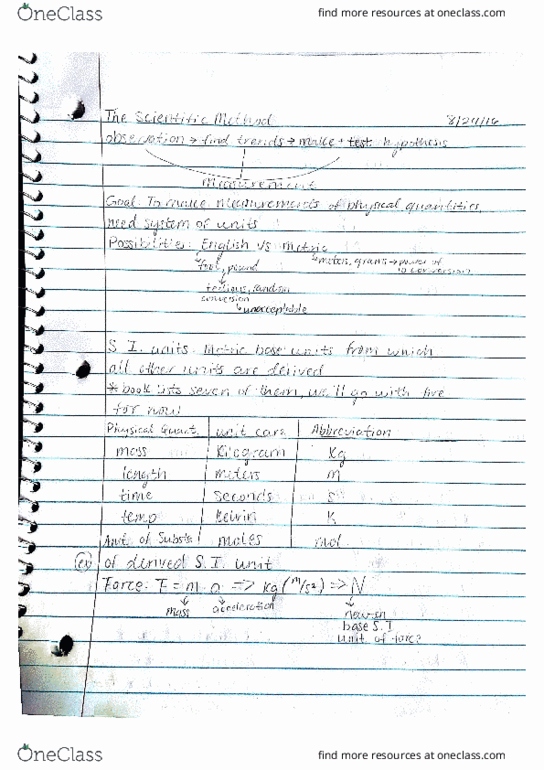 OneClass
find more resources at oneclass.com
The Scientific Method 8/24/16
observation → find trends → make + test hypothesis
Measurement
Goal: To make measurements of physical quantities,
need system of units
Possibilities: English vs metric
foot, pound
meters, grams → power of
10 conversion
tedious, random
conversion
unacceptable
S.I. units. Metric base units from which
all other units are derived
* book lists seven of them, we'll go with five
for now!
Physical Quant. unit Abbreviation
mass Kilogram Kg
length meters m
time seconds s
temp Kelvin K
Amt. of Subst. moles mol
(ex) of derived S.I. unit
Force: F = m · a => kg (m/s²) => N
mass acceleration newton
base S.I
unit of force
OneClass
find more resources at oneclass.com